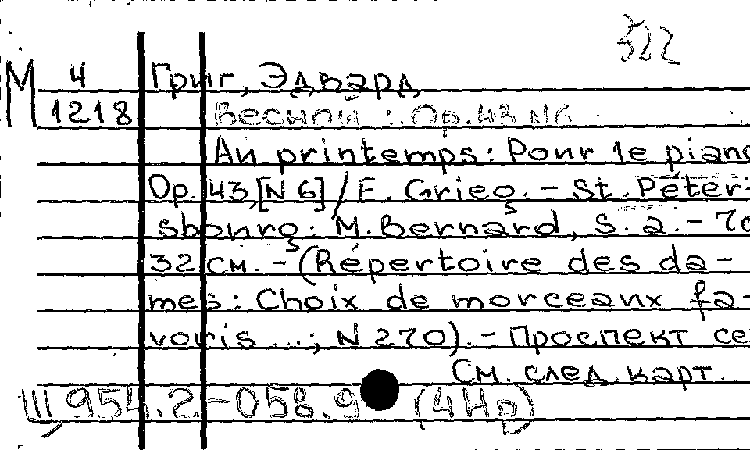 322
М 4 Григ, Эдвард
1218 Весной : Ор.43 N6
Au printemps: Pour le piano
Op. 43,[N 6] / E. Grieg. - St. Péter
sbourg: M. Bernard, s. a. - 7c
32 см. - (Répertoire des da-
mes: Choix de morceaux fa-
voris ...; N 270). - Проспект се
См. след. карт.
Щ 954.2-058.9 (4Нр)